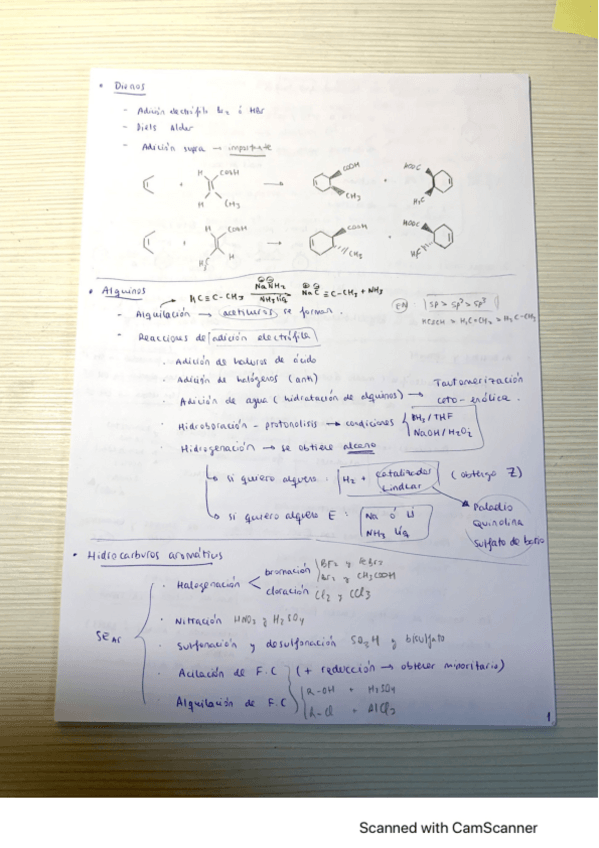 • Dienos
- Adición electrófila Br2 ó HBr
- Diels Alder
- Adición supra → importante
H COOH COOH HOOC
+ → +
H CH3 CH3 H3C
H COOH COOH HOOC
+ → +
H3C H CH3 H3C
• Alquinos
HC≡C-CH3 NaNH2 NH3 líq Na C≡C-CH3 + NH3
- Alquilación → acetiluros se forman.
EN: sp > sp2 > sp3
HC≡CH > H2C=CH2 > H3C-CH3
- Reacciones de adición electrófila
· Adición de haluros de ácido
· Adición de halógenos (anti)
· Adición de agua (hidratación de alquinos) → Tautomerización ceto-enólica.
· Hidroboración - protonolisis → condiciones BH3/THF
NaOH/H2O2
· Hidrogenación → se obtiene alcano
↳ si quiero alqueno: H2 + catalizador Lindlar (obtengo Z)
Paladio
Quinolina
Sulfato de bario
↳ si quiero alqueno E: Na ó Li
NH3 líq
• Hidrocarburos aromáticos
SEAr
· Halogenación
bromación Br2 y FeBr3
Br2 y CH3COOH
cloración Cl2 y CCl3
· Nitración HNO3 y H2SO4
· Sulfonación y desulfonación SO3H y bisulfato
· Acilación de F.C (+ reducción → obtener minoritario)
· Alquilación de F.C
R-OH + H2SO4
R-Cl + AlCl3
1
Scanned with CamScanner